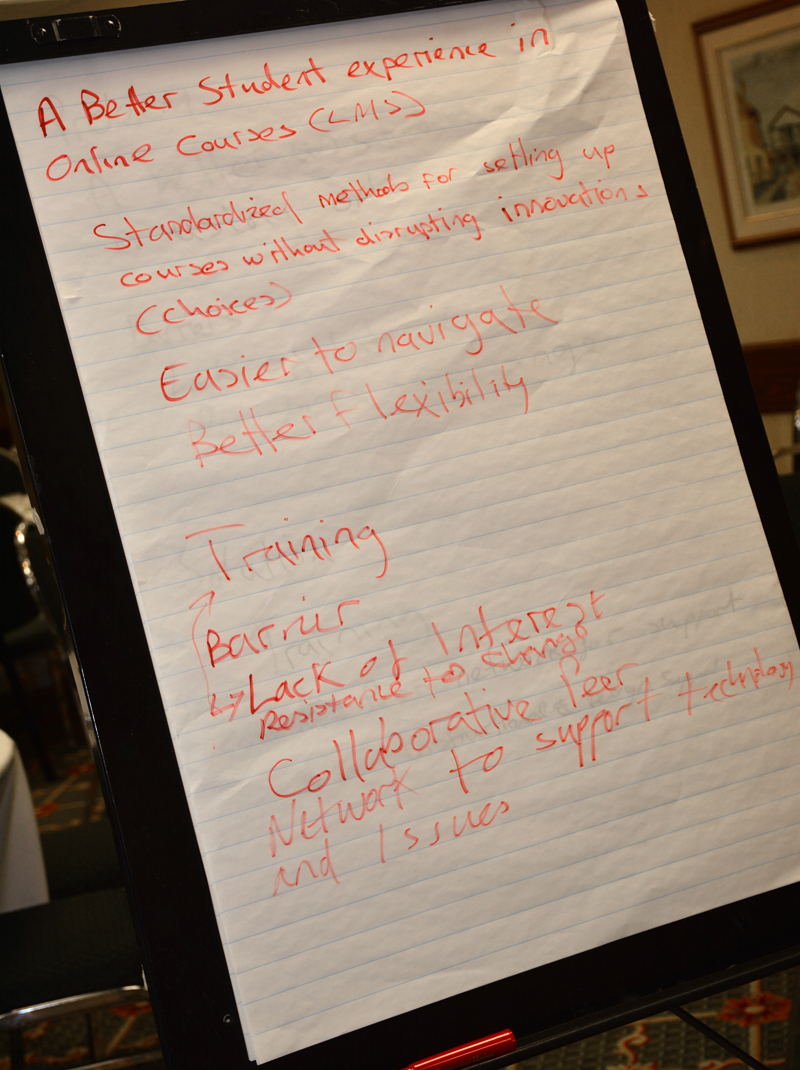 A Better Student experience in
Online Courses (LMS)
Standardized methods for setting up
courses without disrupting innovations
(choices)
Easier to navigate
Better flexibility
Training
Barrier
↳ Lack of Interest
Resistance to change
Collaborative Peer
Network to support technology
and Issues